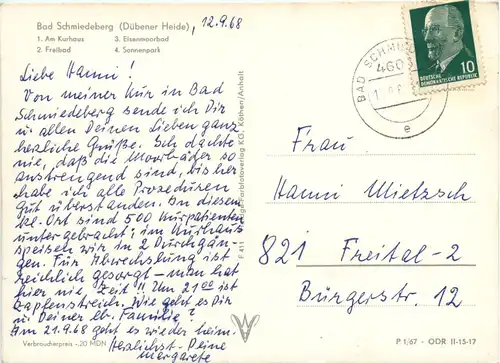 Bad Schmiedeberg (Dübener Heide)
1. Am Kurhaus 3. Eisenmoorbad
2. Freibad 4. Sonnenpark
12.9.68
Liebe Hanni!
Von meiner Kur in Bad
Schmiedeberg sende ich Dir
u. allen Deinen Lieben ganz
herzliche Grüße. Ich dachte
nie, daß die Moorbäder so
anstrengend sind, bisher
habe ich alle Prozeduren
gut überstanden. In diesem
kl. Ort sind 500 Kurpatienten
untergebracht, im Kurhaus
speisen wir in 2 Durchgän-
gen. Für Abwechslung ist
reichlich gesorgt - man hat
hier nie Zeit!! Um 21 00 ist
Zapfenstreich. Wie geht es Dir
u. Deiner lb. Familie?
Am 21.9.68 geht es wieder heim.
Herzlichst - Deine
Margarete
Verbraucherpreis -,20 MDN
F 411
Farbfotoverlag KG, Köthen/Anhalt
BAD SCHMI
460
e
DEUTSCHE
DEMOKRATISCHE REPUBLIK
10
Frau
Hanni Mietzsch
821 Freital-2
Burgerstr. 12
P 1/67 - ODR II-15-17